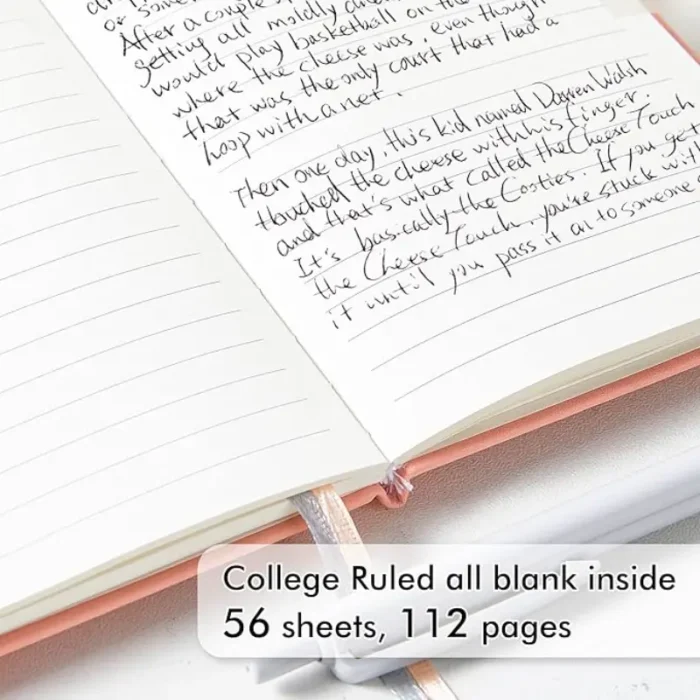 or some
After a couple
getting all moldy and
would play basketball on the
where the cheese was, even though
that was the only court that had a
hoop with a net.
Then one day, this kid named Darren Walsh
touched the cheese with his finger.
and that's what called the Cheese Touch
It's basically the Cooties. If you get
the Cheese Touch, you're stuck with
it until you pass it on to someone
College Ruled all blank inside
56 sheets, 112 pages